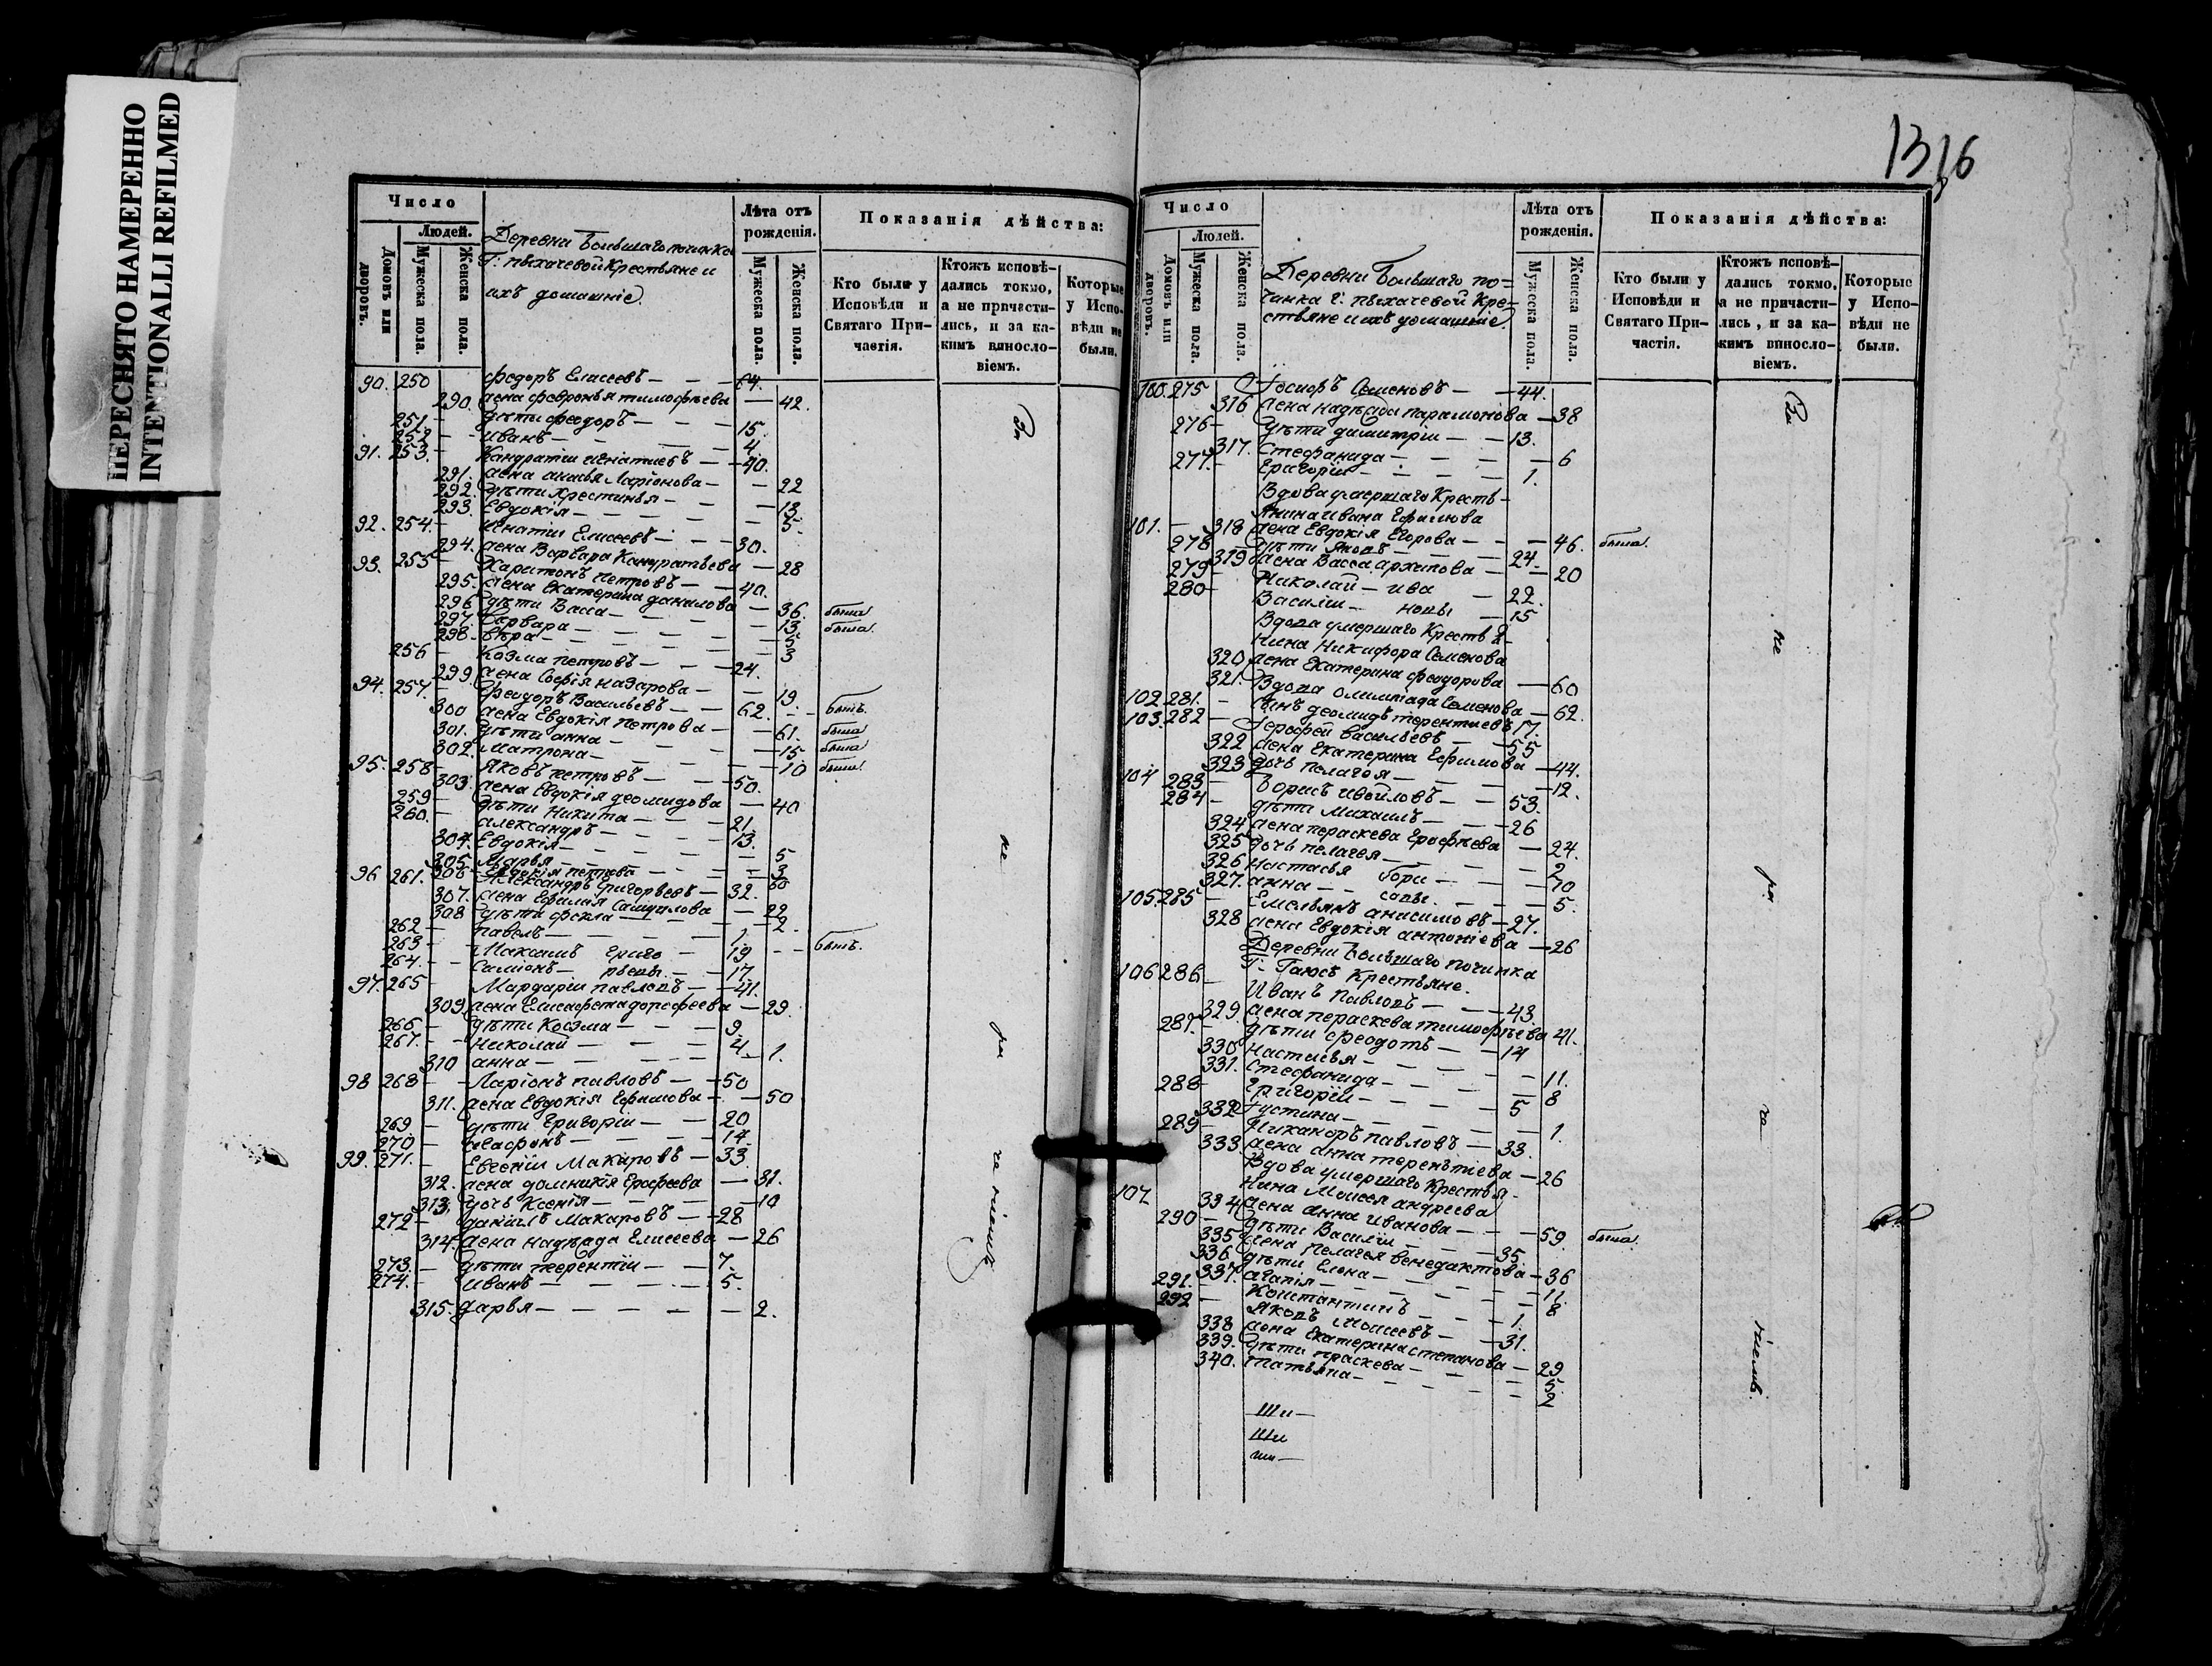 ПЕРЕСНЯТО НАМЕРЕННО
INTENTIONALLI REFILMED
1316
Число
Людей.
Домовъ или дворовъ.
Мужеска пола.
Женска пола.
Деревни Большаго починка
Г: пыхачевой Крестьяне и
ихъ домашніе.
Лѣта отъ рожденія.
Мужеска пола.
Женска пола.
Показанія дѣйства:
Кто были у Исповѣди и Святаго Причастія.
Ктожъ исповѣдались токмо, а не причастились, и за какимъ винословіемъ.
Которые у Исповѣди не были.
90. 250 Федоръ Елисеевъ — 64.
290. жена февронья тимофѣева — 42.
251. дѣти феодоръ — 15.
252 иванъ — 4.
91. 253. Кандратіи игнатиевъ — 40.
291. жена анисья Ларіонова — 22
292. дѣти хрестинья — 13.
293. Евдокія — 5.
92. 254. игнатіи Елисеевъ — 30.
294. жена Варвара Кандратьева — 28
93. 255 Харитонъ петровъ — 40.
295. жена Екатерина данилова — 36. была
296 дѣти Васса — 13. была.
297. Варвара — 5.
298. вѣра — 3
256 Козма петровъ — 24.
299. жена Софія назарова — 19.
94. 257. феодоръ Васильевъ — 62. былъ.
300 жена Евдокія петрова — 61. была
301. дѣти анна — 15 была
302. матрона — 10 была
95. 258 Яковъ петровъ — 50.
303. жена Евдокія деомидова — 40
259 дѣти Никита — 21.
260. александръ — 13.
304. Евдокія — 5
305. Марья — 3
306 Евдокія петрова — 50
96 261. Александръ григорьевъ — 32.
307. жена Ефимия Самуилова — 22
308 дѣти фекла — 2.
262 павелъ — 1.
263 Максимъ Григо — 19 былъ.
264. Саміонъ — рьевы. — 17.
97. 265 Мардаріи павловъ — 41.
309. жена Елисафета дорофеева — 29.
266 дѣти Козма — 9.
267. николай — 4.
310 анна — 1.
98 268 Ларіонъ павловъ — 50
311. жена Евдокія Ефимова — 50
269 дѣти Григоріи — 20
270 — 14.
99. 271. Евгеніи Макаровъ — 33
312. жена домникія Ерофеева — 31.
313. дочь Ксенія — 10
272 даніилъ Макаровъ — 28
314. жена надѣжда Елисеева — 26
273. дѣти терентіи — 7.
274. иванъ — 5.
315. дарья — 2.
За не ра че ніемъ
Число
Людей.
Домовъ или дворовъ.
Мужеска пола.
Женска пола.
Деревни Большаго по-
чинка г: пыхачевой Кре-
стьяне и ихъ домашніе
Лѣта отъ рожденія.
Мужеска пола.
Женска пола.
Показанія дѣйства:
Кто были у Исповѣди и Святаго Причастія.
Ктожъ исповѣдались токмо, а не причастились, и за какимъ винословіемъ.
Которые у Исповѣди не были.
100. 275 Семеновъ — 44.
316 жена надѣжда парамонова — 38
276 дѣти димитріи — 13.
317. Стефанида — 6
277. Григоріи — 1.
Вдова умершаго Кресть-
янина ивана Ефимова
101. 318 жена Евдокія Егорова — 46. была.
278 дѣти Яковъ — 24.
319 жена Васса архипова — 20
279 Николай — ива — 22.
280 Василіи — новы — 15
Вдова умершаго Крестья-
нина Никифора Семенова
320 жена Екатерина феодорова — 60
321. Вдова олимпіада Семенова — 62.
102 281. сынъ деомидъ терентиевъ 17.
103. 282 Ерофей васильевъ — 55
322 жена Екатерина Ефимова — 44.
323 дочь пелагея — 12.
104 283 Борисъ — 53.
284 дѣти Михаилъ — 26
324 жена параскева Ерофѣева — 24.
325 дочь пелагея — 2
326 настасья Бори — 70
327. анна — совы. — 5.
105. 285 Емельянъ анисимовъ — 27.
328 жена Евдокія антоніева — 26
Деревни Большаго Починка
Г: Гаюсъ Крестьяне.
106 286 Иванъ Павловъ — 43.
329. жена пераскева тимофѣева 41.
287. дѣти феодотъ — 14
330 настасья — 11.
331. Стефанида — 8
288 Григоріи — 5
332 Густина — 1.
289 Никаноръ павловъ — 33.
333 жена анна терентіева — 26
Вдова умершаго Крестья-
нина Моисея андреева
107 334 жена анна иванова — 59. была.
290 дѣти Василіи — 35.
335 жена пелагея венедактова — 36
336 дѣти Елена — 11.
337. агапія — 8
291. Константинъ — 1.
292 Яковъ Моисеевъ — 31.
338 жена Екатерина степанова — 29
339. дѣти праскева — 5.
340. татьяна — 2
За не ра че ніемъ.